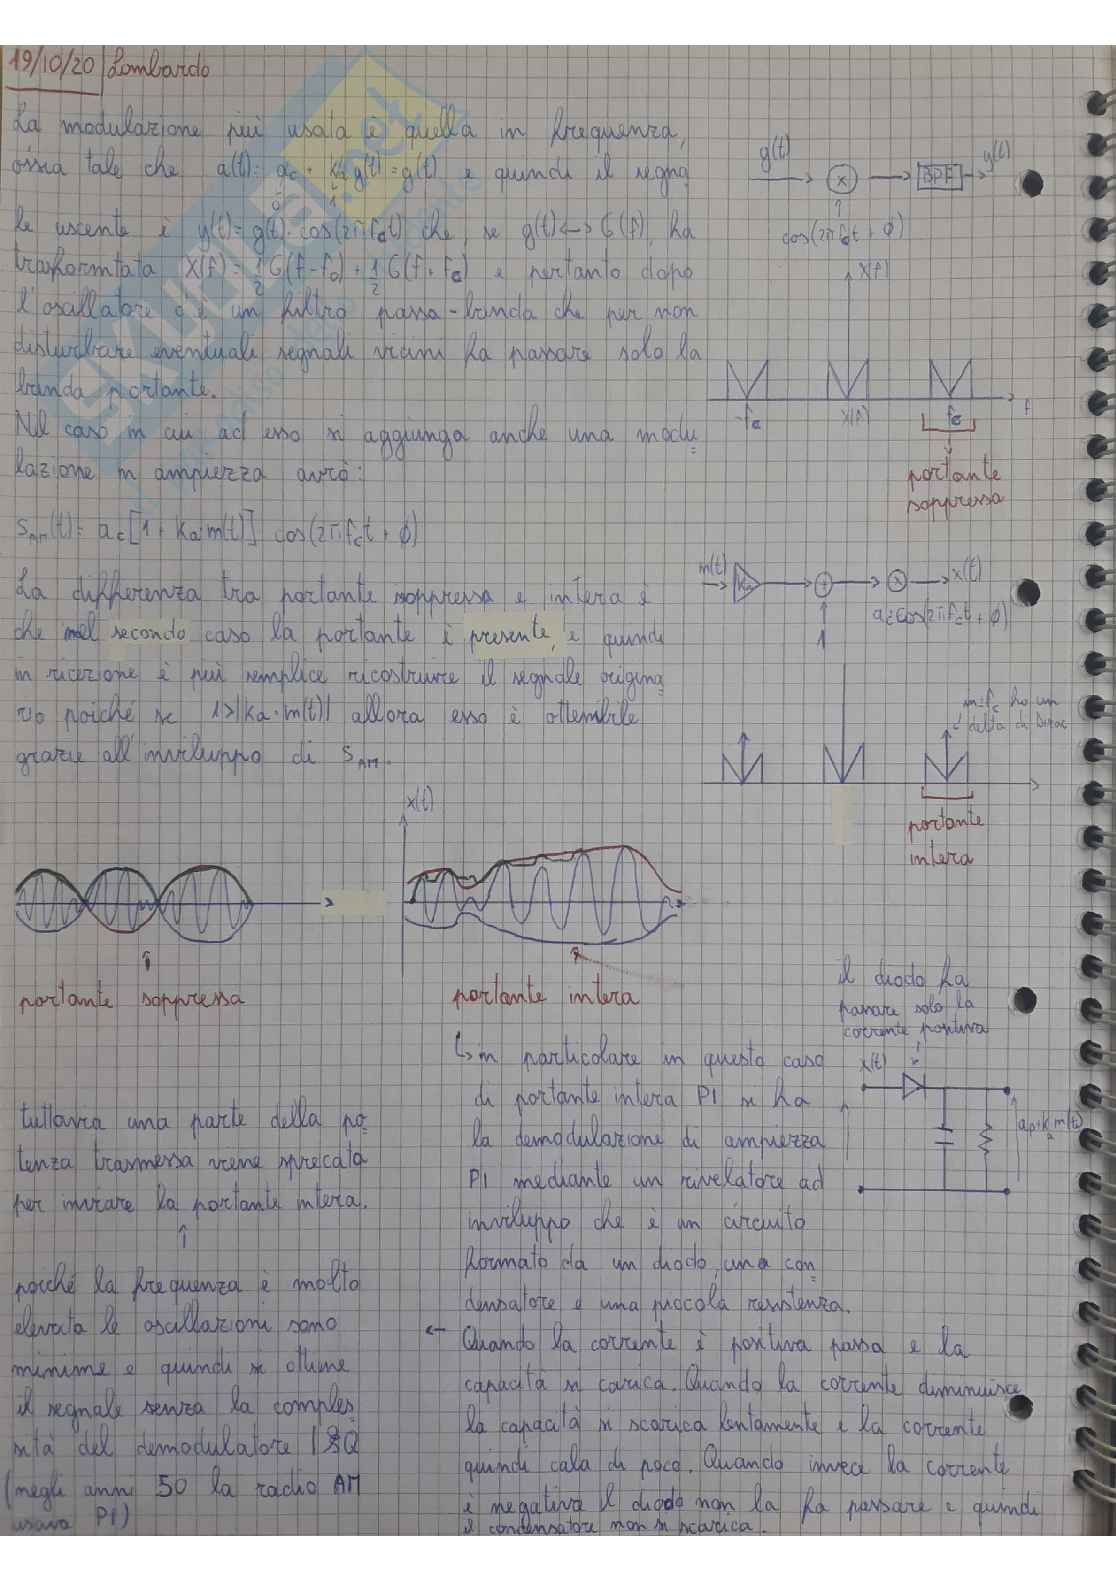 19/10/20 Lombardo
La modulazione più usata è quella in frequenza,
ossia tale che a(t)= ac + ka g(t) = g(t) e quindi il segna
0 1
le uscente è y(t)= g(t)·cos(2πfct) che, se g(t)<->G(f), ha
trasformtata X(f)= 1/2 G(f-fc) + 1/2 G(f+fc) e pertanto dopo
l'oscillatore c'è un filtro passa-banda che per non
disturbare eventuali segnali vicini fa passare solo la
banda portante.
Nel caso in cui ad esso si aggiunga anche una modu
lazione in ampiezza avrò:
SAM(t)= ac[1 + ka·m(t)] cos(2πfct + φ)
La differenza tra portante soppressa e intera è
che nel secondo caso la portante è presente, e quindi
in ricezione è più semplice ricostruire il segnale origina
rio poiché se 1>|ka·m(t)| allora esso è ottenibile
grazie all'inviluppo di SAM.
g(t)
X
BPF
y(t)
cos(2πfct + φ)
X(f)
-fc
X(f)
fc
f
portante
soppressa
m(t)
ka
+
X
x(t)
1
ac cos(2πfct + φ)
in ± fc ho un
delta di Dirac
portante
intera
x(t)
portante soppressa
portante intera
il diodo fa
passare solo la
corrente positiva
x(t)
tuttavia una parte della po
tenza trasmessa viene sprecata
per inviare la portante intera.
poiché la frequenza è molto
elevata le oscillazioni sono
minime e quindi si ottiene
il segnale senza la comples
sità del demodulatore I&Q
(negli anni 50 la radio AM
usava PI)
↳ in particolare in questo caso
di portante intera PI si ha
la demodulazione di ampiezza
PI mediante un rivelatore ad
inviluppo che è un circuito
formato da un diodo, una con
densatore e una piccola resistenza.
Quando la corrente è positiva passa e la
capacità si carica. Quando la corrente diminuisce
la capacità si scarica lentamente e la corrente
quindi cala di poco. Quando invece la corrente
è negativa il diodo non la fa passare e quindi
il condensatore non si scarica.